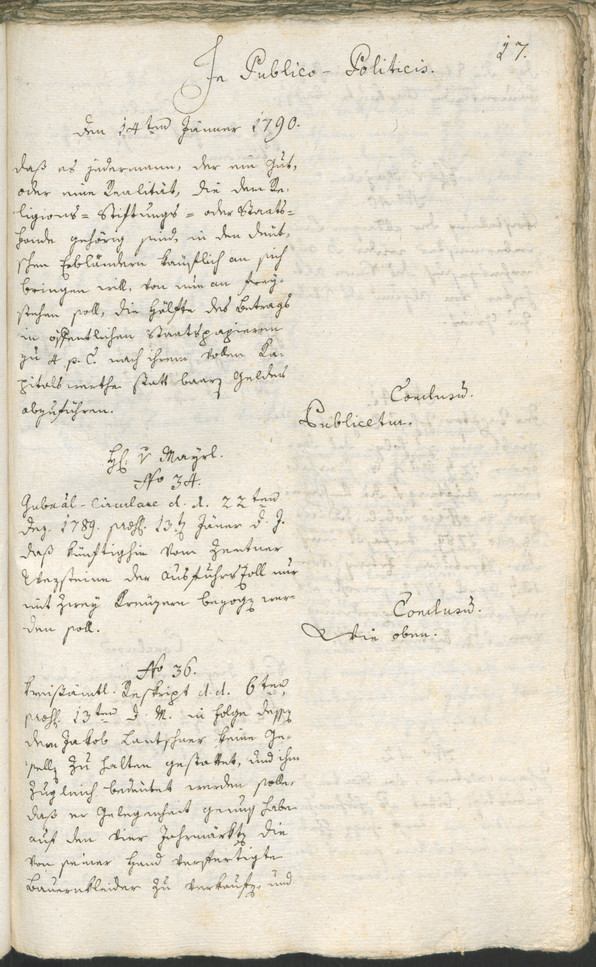 17.
In Publico-Politicis.
den 14ten Jänner 1790.
daß es jedermann, der ein Gut,
oder eine Realität, die dem Re-
ligions- Stiftungs- oder Staats-
fonde gehörig sind, in den deut-
schen Erbländern käuflich an sich
bringen will, von nun an frey-
stehen soll, die Hälfte des Betrags
in öffentlichen Staatspapieren
zu 4 p. C. nach ihrem vollen Ka-
pitalswerthe statt baaren Geldes
abzuführen.
Conclusum.
Publicetur.
H. v Mayrl.
No 34.
Gubernial-Circulare d. d. 22ten
Dez. 1789. praes. 13ten Jäner d. J.
daß künftighin vom Zentner
Wezsteine der Ausfuhrszoll nur
mit zwey Kreuzern bezogen wer-
den soll.
Conclusum.
Wie oben.
No 36.
Kreisämtl. Reskript d. d. 6ten,
praes. 13ten d. M. in Folge dessen
dem Jakob Lantschner keine Ge-
sellen zu halten gestattet, und ihm
zugleich bedeutet werden solle,
daß er Gelegenheit genug habe
auf den vier Jahrmärkten die
von seiner Hand verfertigte
Bauernkleider zu verkaufen, und